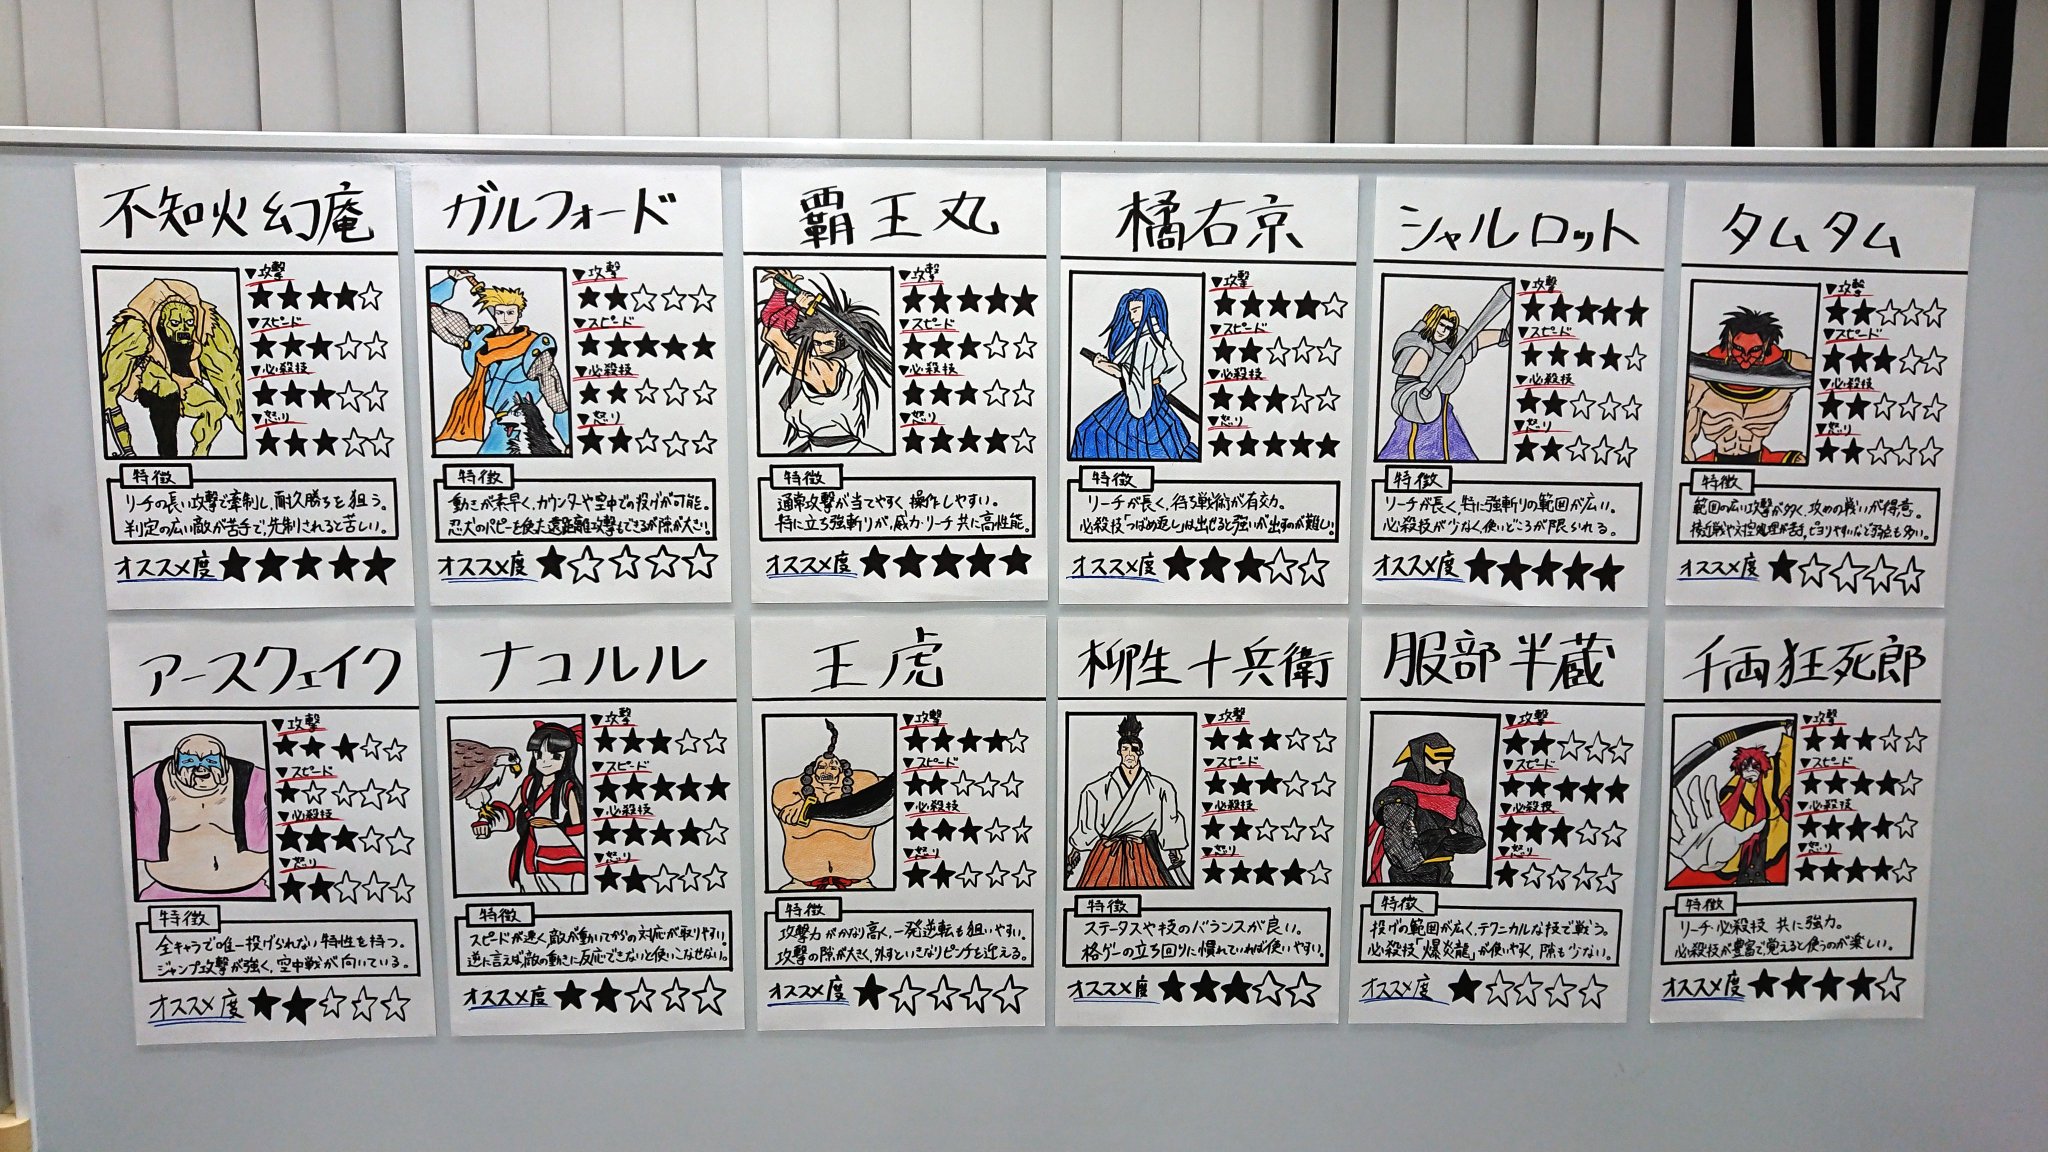 不知火幻庵
▼攻撃
★★★★☆
▼スピード
★★★☆☆
▼必殺技
★★★☆☆
▼怒り
★★★☆☆
特徴
リーチの長い攻撃で牽制し、耐久勝ちを狙う。
判定の広い敵が苦手で、先制されると苦しい。
オススメ度 ★★★★★
ガルフォード
▼攻撃
★★☆☆☆
▼スピード
★★★★★
▼必殺技
★★☆☆☆
▼怒り
★★☆☆☆
特徴
動きが素早く、カウンターや空中での投げが可能。
忍犬のパピーを使た遠距離攻撃もできるが隙が大きい!
オススメ度 ★☆☆☆☆
覇王丸
▼攻撃
★★★★★
▼スピード
★★★☆☆
▼必殺技
★★★☆☆
▼怒り
★★★★☆
特徴
通常攻撃が当てやすく操作しやすい。
特に立ち強斬りが、威力・リーチ共に高性能。
オススメ度 ★★★★★
橘右京
▼攻撃
★★★★☆
▼スピード
★★☆☆☆
▼必殺技
★★★☆☆
▼怒り
★★★★★
特徴
リーチが長く、待ち戦術が有効。
必殺技「つばめ返し」は出せると強いが出すのが難しい
オススメ度 ★★★☆☆
シャルロット
▼攻撃
★★★★★
▼スピード
★★★★☆
▼必殺技
★★☆☆☆
▼怒り
★★☆☆☆
特徴
リーチが長く、特に強斬りの範囲が広い。
必殺技が少なく使いどころが限られる。
オススメ度 ★★★★★
タムタム
▼攻撃
★★☆☆☆
▼スピード
★★★☆☆
▼必殺技
★★☆☆☆
▼怒り
★★☆☆☆
特徴
範囲の広い攻撃が多く、攻めの戦いが得意。
接近戦や対空処理が苦手。ピヨりやすいなど弱点も多い。
オススメ度 ★☆☆☆☆
アースクェイク
▼攻撃
★★★☆☆
▼スピード
★☆☆☆☆
▼必殺技
★★★☆☆
▼怒り
★★☆☆☆
特徴
全キャラで唯一投げられない特性を持つ。
ジャンプ攻撃が強く、空中戦が向いている。
オススメ度 ★★☆☆☆
ナコルル
▼攻撃
★★★☆☆
▼スピード
★★★★★
▼必殺技
★★★★☆
▼怒り
★★☆☆☆
特徴
スピードが速く敵が動いてからの対応が取りやすい。
逆に言えば敵の動きに反応できないと使いこなせない。
オススメ度 ★★☆☆☆
王虎
▼攻撃
★★★★☆
▼スピード
★★☆☆☆
▼必殺技
★★★☆☆
▼怒り
★★☆☆☆
特徴
攻撃力がかなり高く、一発逆転も狙いやすい。
攻撃の隙が大きく、外すといきなりピンチを迎える。
オススメ度 ★☆☆☆☆
柳生十兵衛
▼攻撃
★★★☆☆
▼スピード
★★★☆☆
▼必殺技
★★☆☆☆
▼怒り
★★★★☆
特徴
ステータスや技のバランスが良い。
格ゲーの立ち回りに慣れていれば使いやすい。
オススメ度 ★★★☆☆
服部半蔵
▼攻撃
★★☆☆☆
▼スピード
★★★★★
▼必殺技
★★★☆☆
▼怒り
★☆☆☆☆
特徴
投げの範囲が広く、テクニカルな技で戦う。
必殺技「爆炎龍」が使いやすく、隙も少ない。
オススメ度 ★☆☆☆☆
千両狂死郎
▼攻撃
★★★☆☆
▼スピード
★★★★☆
▼必殺技
★★★★☆
▼怒り
★★★★☆
特徴
リーチ・必殺技 共に強力。
必殺技が豊富で覚えると使うのが楽しい。
オススメ度 ★★★★☆